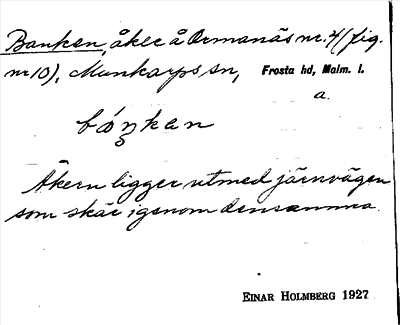 Banken, åker å Ormanäs nr. 4 (fig.
nr 10), Munkarps sn, Frosta hd, Malm. l.
a.
báŋkən
Åkern ligger utmed järnvägen
som skär igenom densamma.
EINAR HOLMBERG 1927